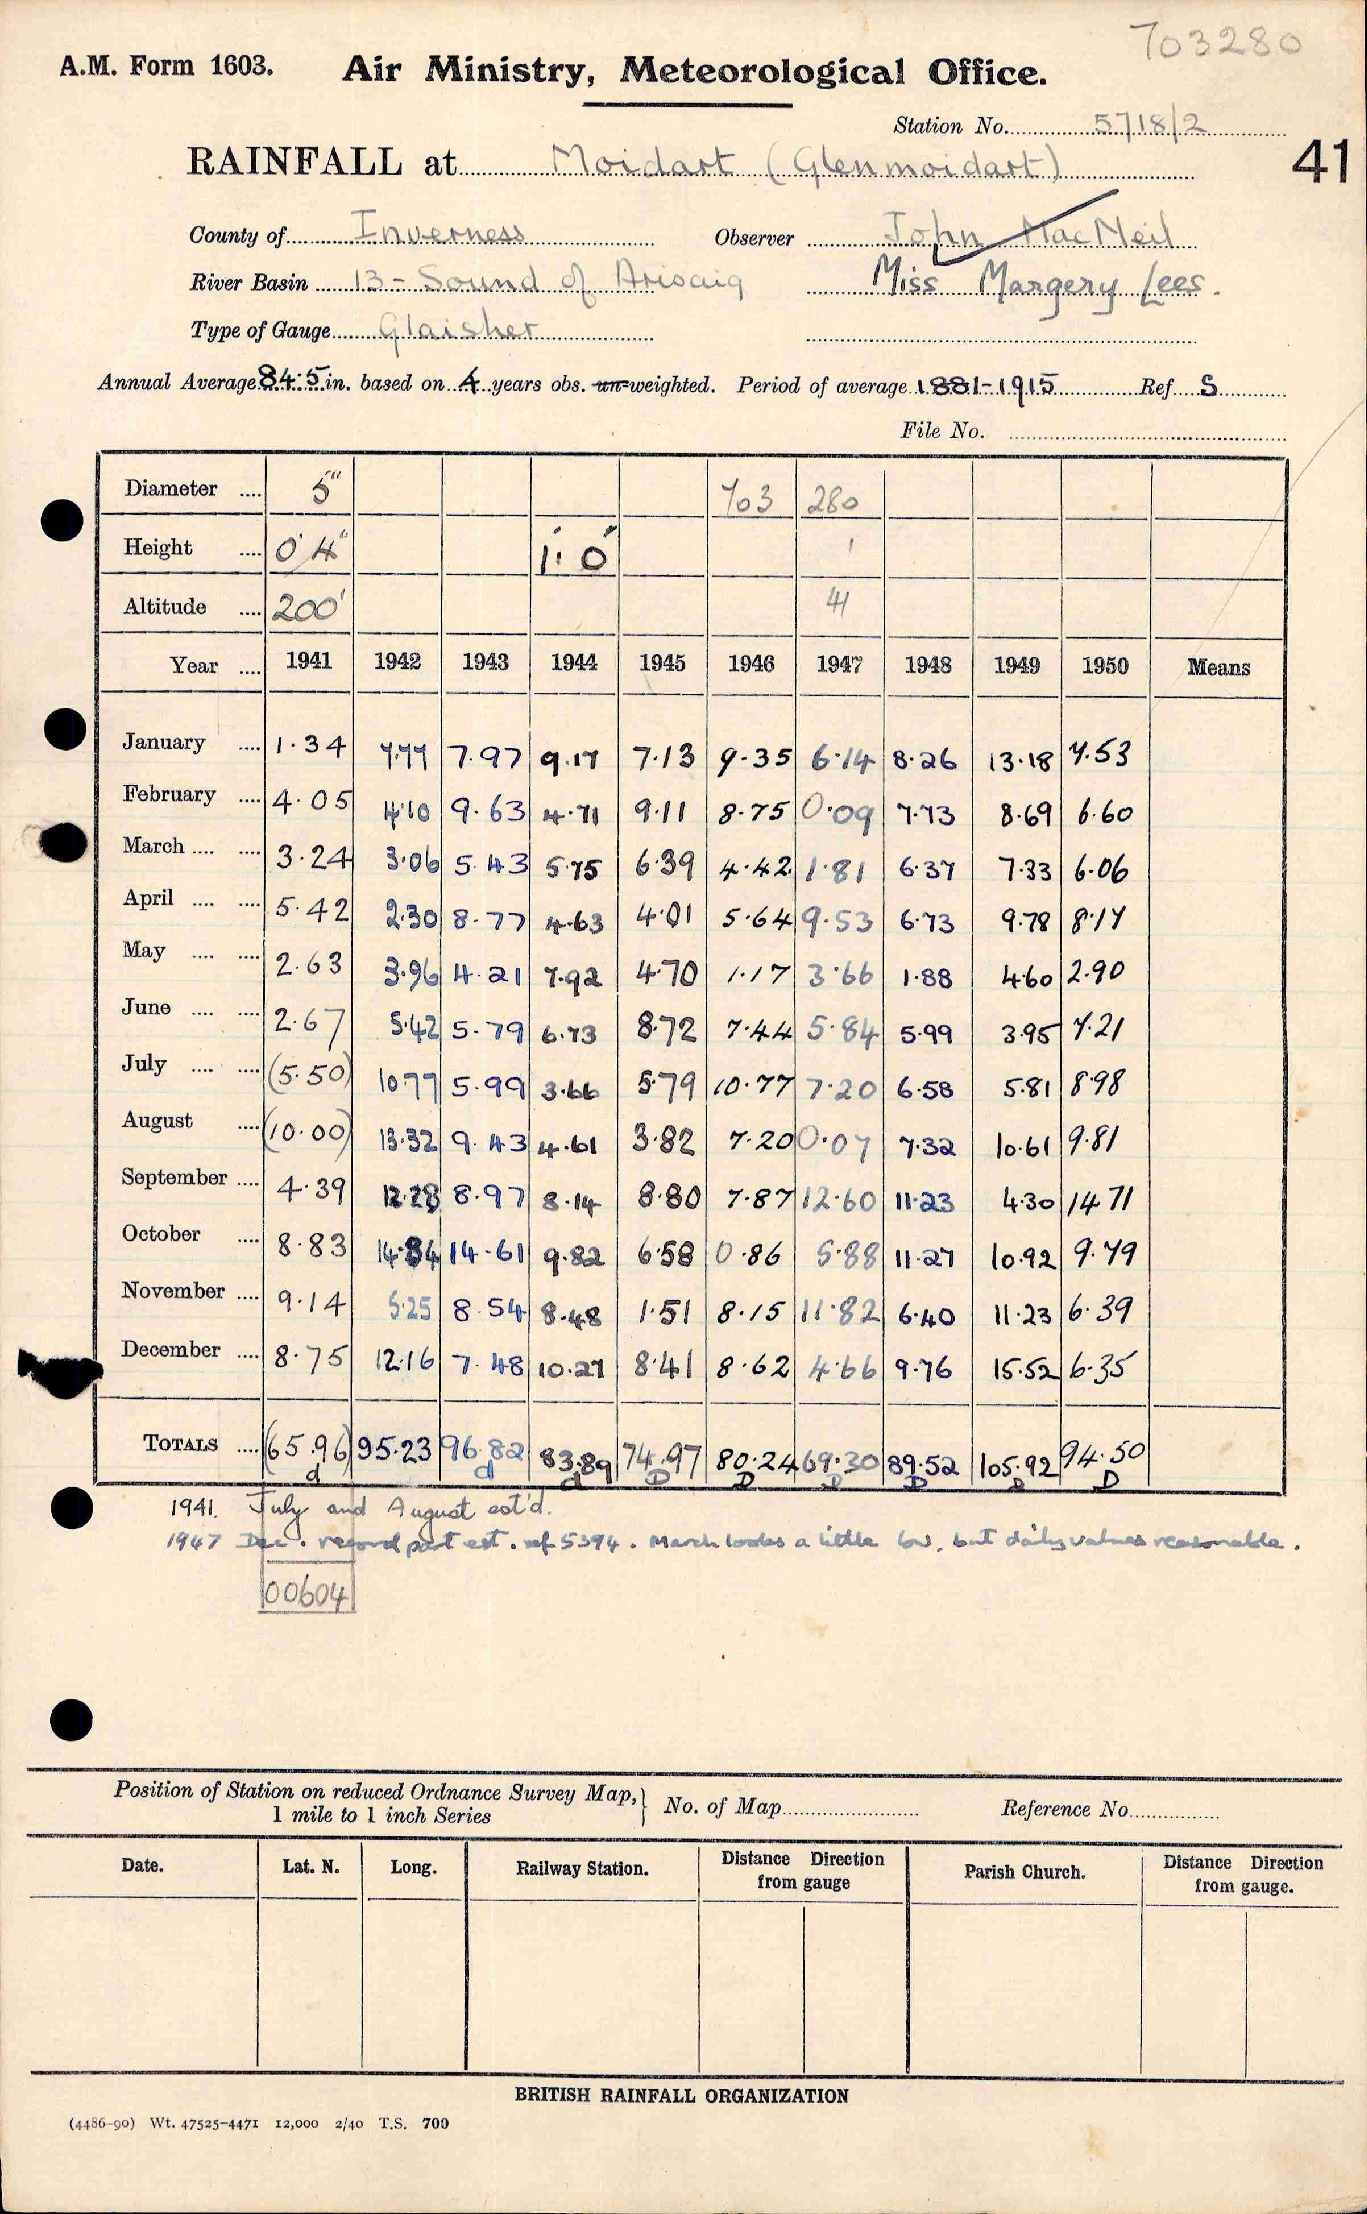 703280
A.M. Form 1603. Air Ministry, Meteorological Office.
Station No. 5718/2
RAINFALL at Moidart (Glenmoidart) 41
County of Inverness Observer John MacNeil
River Basin 13 - Sound of Arisaig Miss Margery Lees.
Type of Gauge Glaisher
Annual Average 84.5 in. based on 4 years obs. un-weighted. Period of average 1881-1915 Ref S
File No.
Diameter .... 5" 703 280
Height .... 0' 4" 1' 0" 1
Altitude .... 200' 41
Year .... 1941 1942 1943 1944 1945 1946 1947 1948 1949 1950 Means
January .... 1.34 7.77 7.97 9.17 7.13 9.35 6.14 8.26 13.18 7.53
February .... 4.05 4.10 9.63 4.71 9.11 8.75 0.09 7.73 8.69 6.60
March .... .... 3.24 3.06 5.43 5.75 6.39 4.42 1.81 6.37 7.33 6.06
April .... .... 5.42 2.30 8.77 4.63 4.01 5.64 9.53 6.73 9.78 8.17
May .... .... 2.63 3.96 4.21 7.92 4.70 1.17 3.66 1.88 4.60 2.90
June .... .... 2.67 5.42 5.79 6.73 8.72 7.44 5.84 5.99 3.95 7.21
July .... .... (5.50) 10.77 5.99 3.66 5.79 10.77 7.20 6.58 5.81 8.98
August .... (10.00) 13.32 9.43 4.61 3.82 7.20 0.07 7.32 10.61 9.81
September .... 4.39 12.28 8.97 8.14 8.80 7.87 12.60 11.23 4.30 14.71
October .... 8.83 14.84 14.61 9.82 6.58 0.86 5.88 11.27 10.92 9.79
November .... 9.14 5.25 8.54 8.48 1.51 8.15 11.82 6.40 11.23 6.39
December .... 8.75 12.16 7.48 10.27 8.41 8.62 4.66 9.76 15.52 6.35
TOTALS .... (65.96) 95.23 96.82 83.89 74.97 80.24 69.30 89.52 105.92 94.50
d d d D D D D D D
1941. July and August est'd.
1947 Dec. record part est. ref 5394. March looks a little low, but daily values reasonable.
00604
Position of Station on reduced Ordnance Survey Map, 1 mile to 1 inch Series } No. of Map Reference No.
Date. Lat. N. Long. Railway Station. Distance Direction from gauge Parish Church. Distance Direction from gauge.
BRITISH RAINFALL ORGANIZATION
(4486-90) Wt. 47525-4471 12,000 2/40 T.S. 700